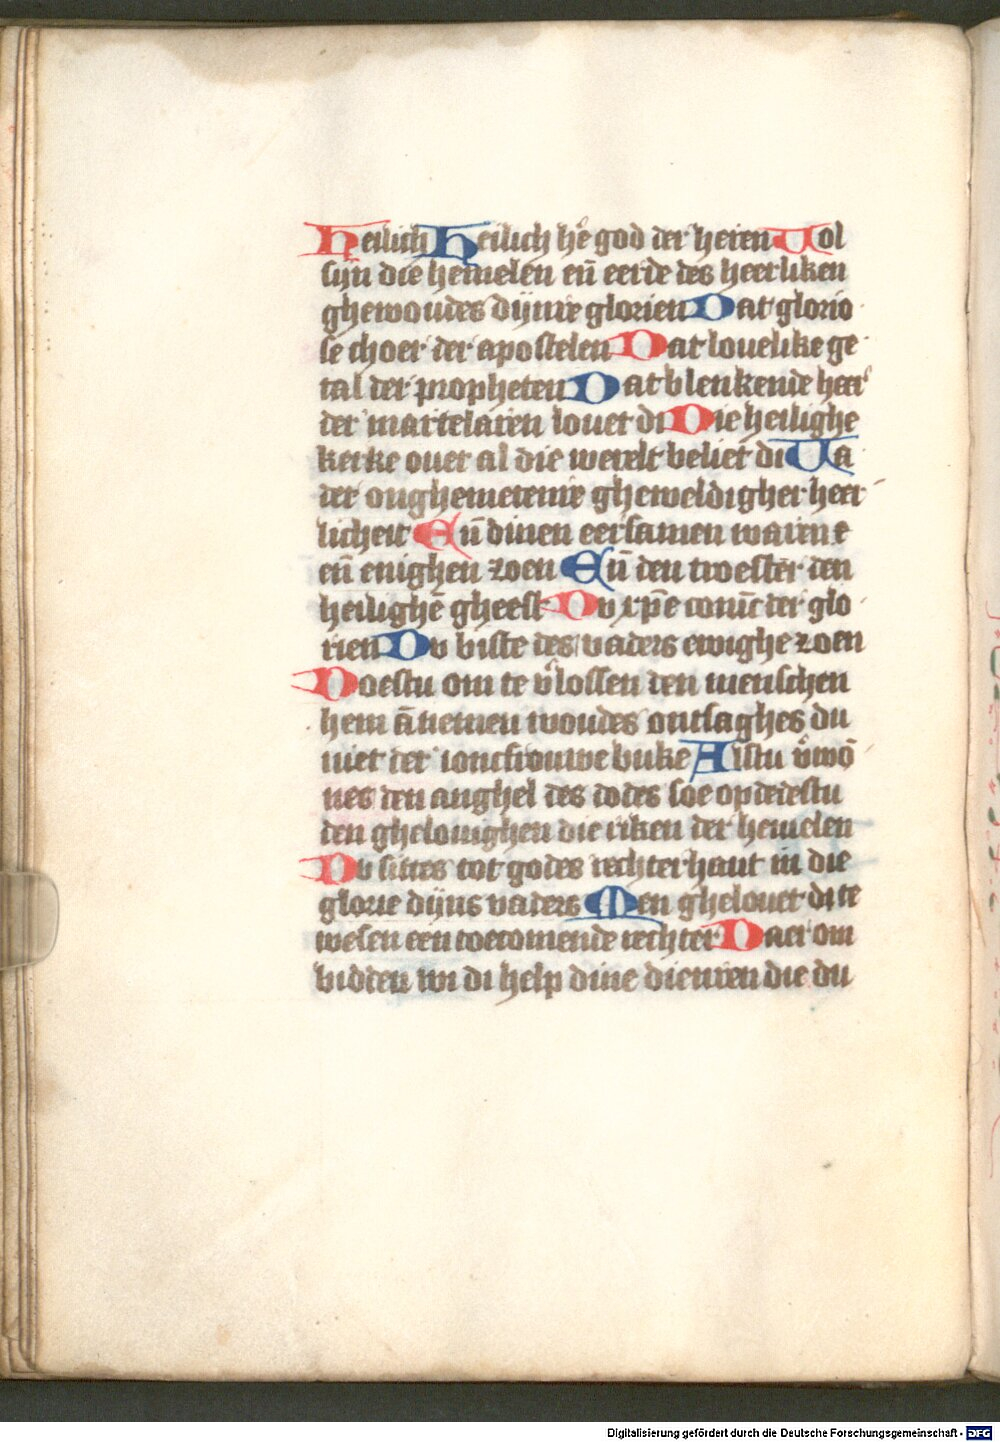 Heilich Heilich hē god der heren Vol
sijn die hemelen eñ eerde des heerliken
ghewoudes dijnre glorien Dat glorio
se choer der apostelen Dat louelike ge
tal der propheten Dat blenkende heer
der martelaren louet di Die heilighe
kerke ouer al die werelt beliet di Va
der onghemetenre gheweldigher heer
licheit Eñ dinen eersamen waren
eñ enighen zoen Eñ den troester den
heilighē gheest Du xp̄e coninc der glo
rien Du biste des vaders ewighe zoen
Doestu om te v̓lossen den menschen
hem ānemen woudes ontsaghes du
niet der ioncfrouwe buke Alstu v̓wō
nes den anghel des dodes soe opdedestu
den ghelouighen die riken der hemelen
Du sittes tot godes rechterhant in die
glorie dijns vaders Men ghelouet di te
wesen een toecomende rechter Daer om
bidden wi di help dine dienren die du
Digitalisierung gefördert durch die Deutsche Forschungsgemeinschaft - DFG